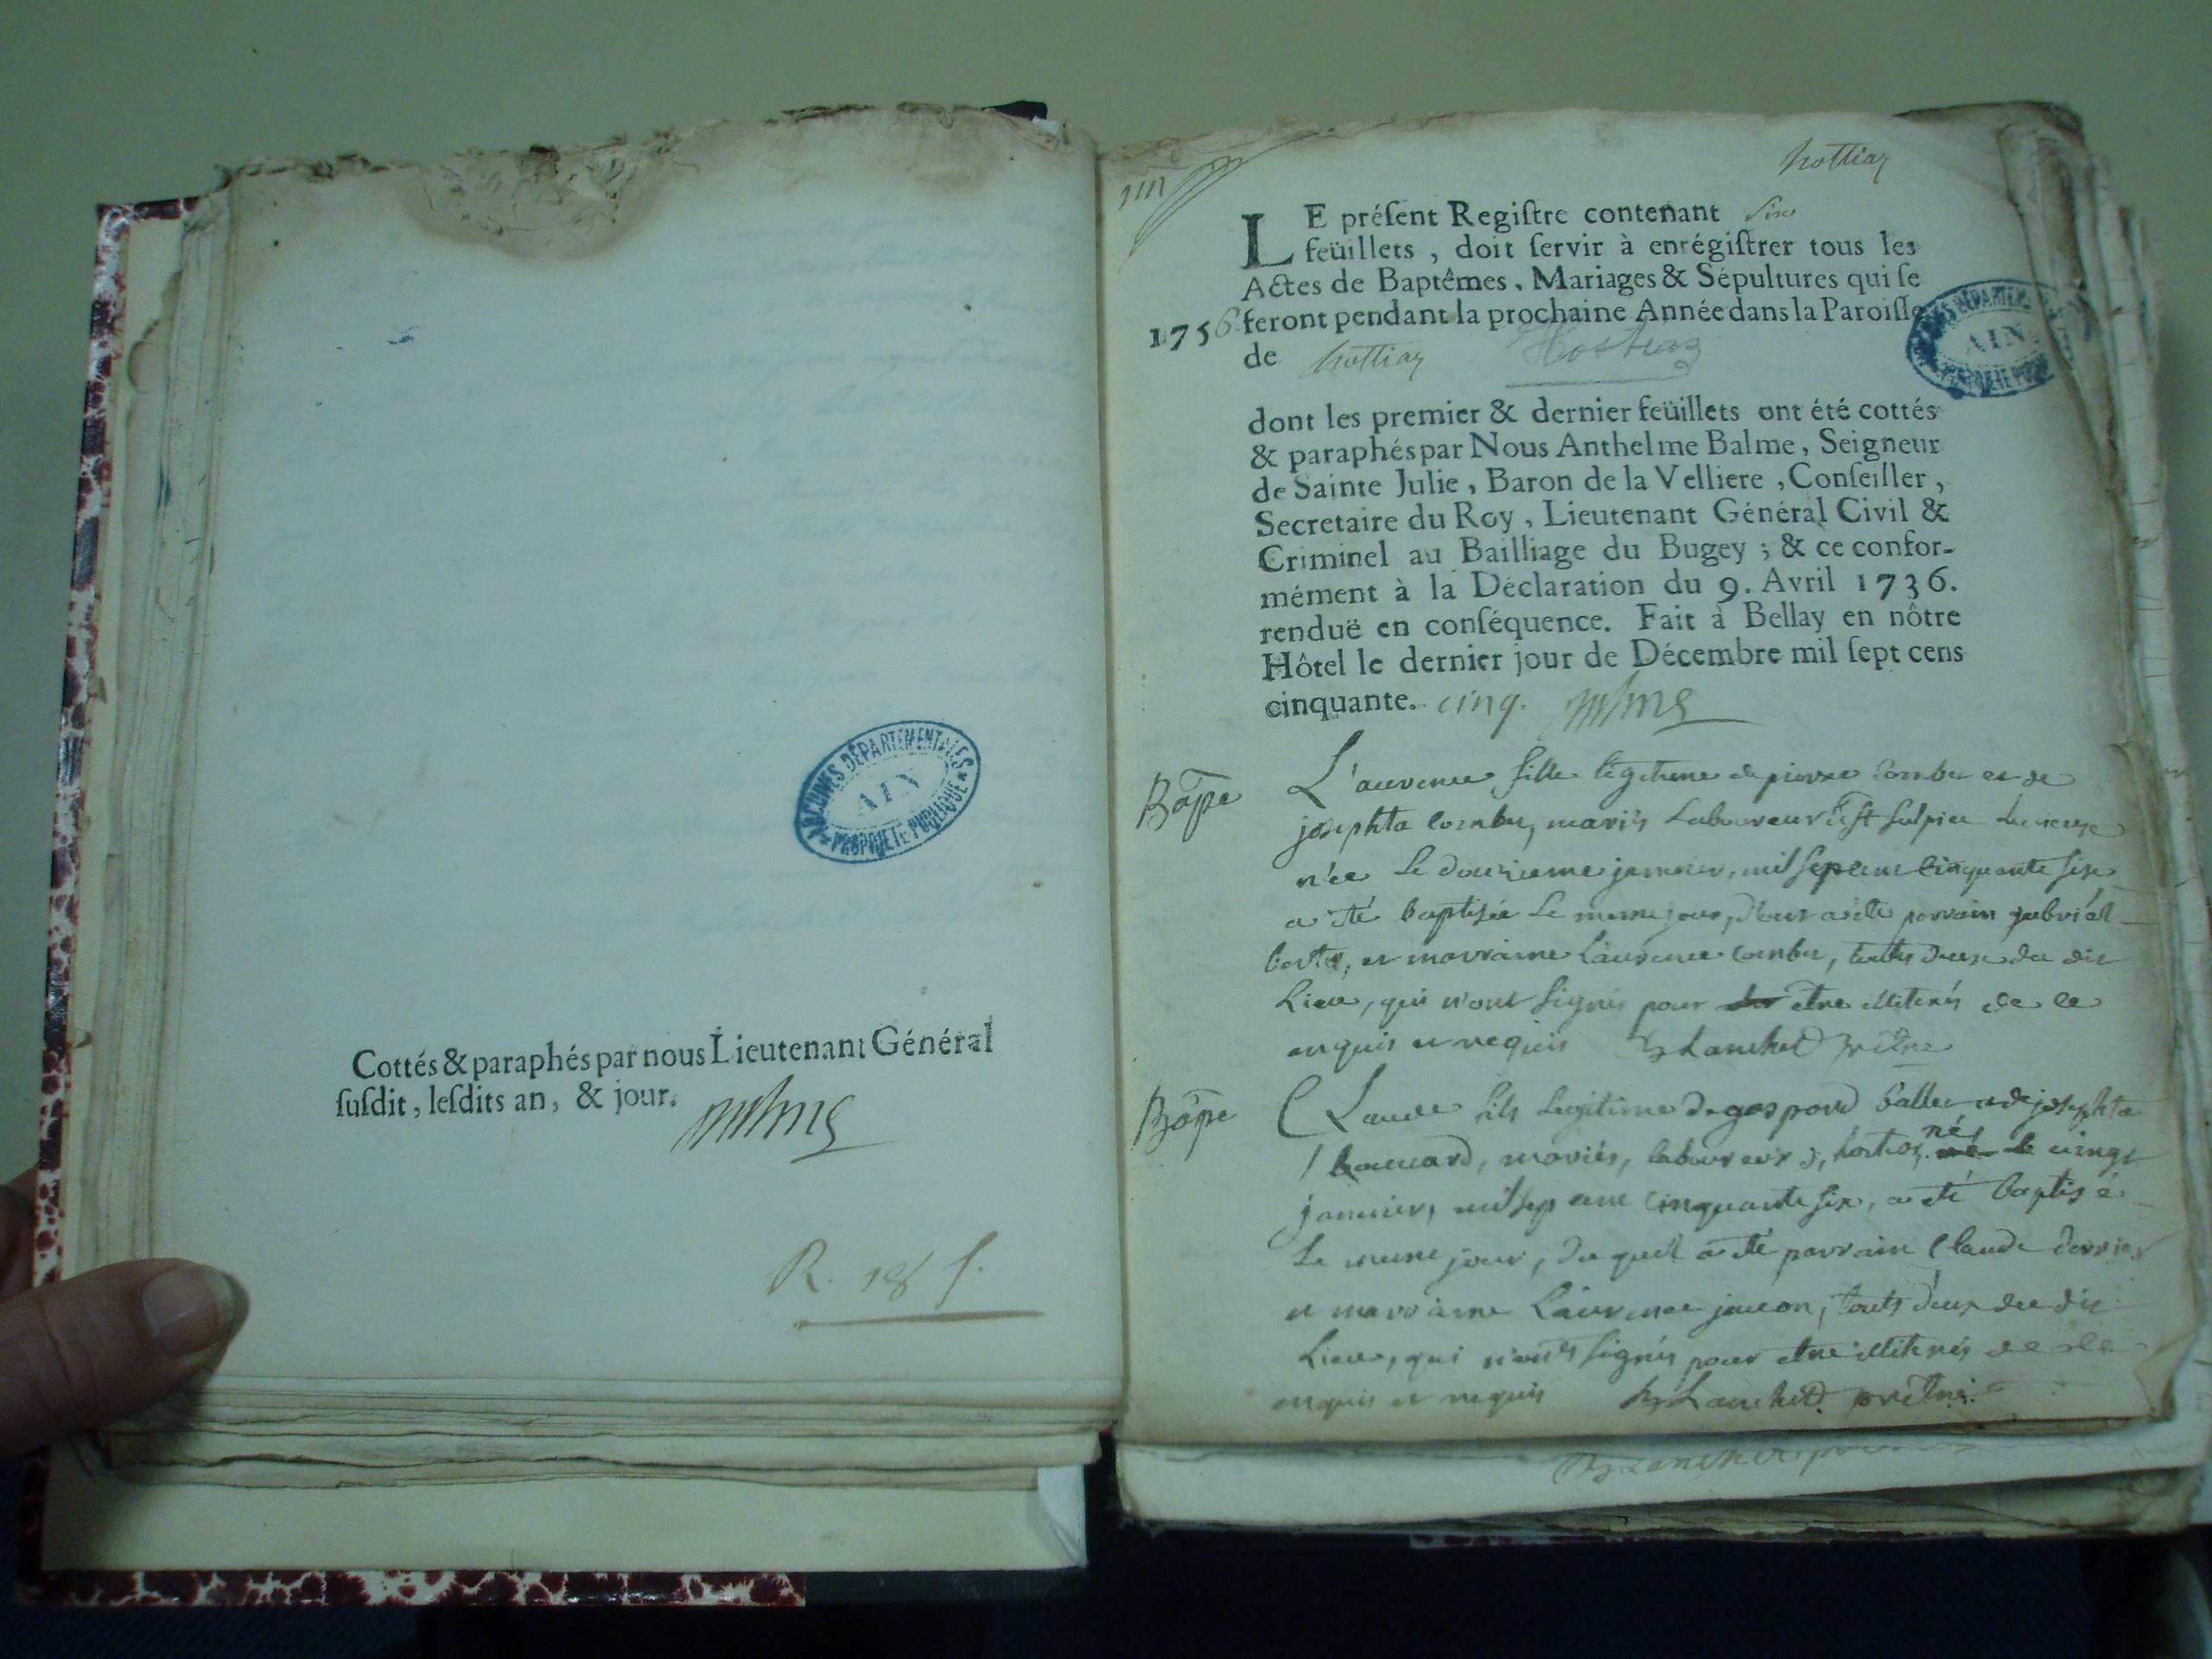 ARCHIVES DÉPARTEMENTALES
AIN
PROPRIÉTÉ PUBLIQUE
Cottés & paraphés par nous Lieutenant Général
ſuſdit, leſdits an, & jour.
R. 18 f.
hottiaz
LE préſent Regiſtre contenant six
feüillets, doit ſervir à enrégiſtrer tous les
Actes de Baptêmes, Mariages & Sépultures qui ſe
1756 feront pendant la prochaine Année dans la Paroiſſe
de hottiaz Hostiaz
AIN
dont les premier & dernier feüillets ont été cottés
& paraphés par Nous Anthelme Balme, Seigneur
de Sainte Julie, Baron de la Velliere, Conſeiller,
Secretaire du Roy, Lieutenant Général Civil &
Criminel au Bailliage du Bugey ; & ce confor-
mément à la Déclaration du 9. Avril 1736.
renduë en conſéquence. Fait à Bellay en nôtre
Hôtel le dernier jour de Décembre mil ſept cens
cinquante. cinq.
Bap̃e L'aurence fille légitime de pierre combet et de
josephta combet, mariés Laboureur
née Le douzieme janvier, mil sep cent cinquante six
a été baptisée Le meme jour, parrain gabriel
et marraine Laurence combet, touts deux du dit
Lieu, qui n'ont signés pour etre illiterés de ce
enquis et requis Blanchet prêtre
Bap̃e Claude fils Legitime de gaspard ballet et de josephte
mariés, laboureurs, né le vingt
janvier, mil sep cent cinquante six, a été baptisé
Le meme jour, du quel a été parrain Claude
et marraine Laurence jancon, touts deux du dit
Lieu, qui n'onts signés pour etre illiterés de ce
enquis et requis Blanchet prêtre